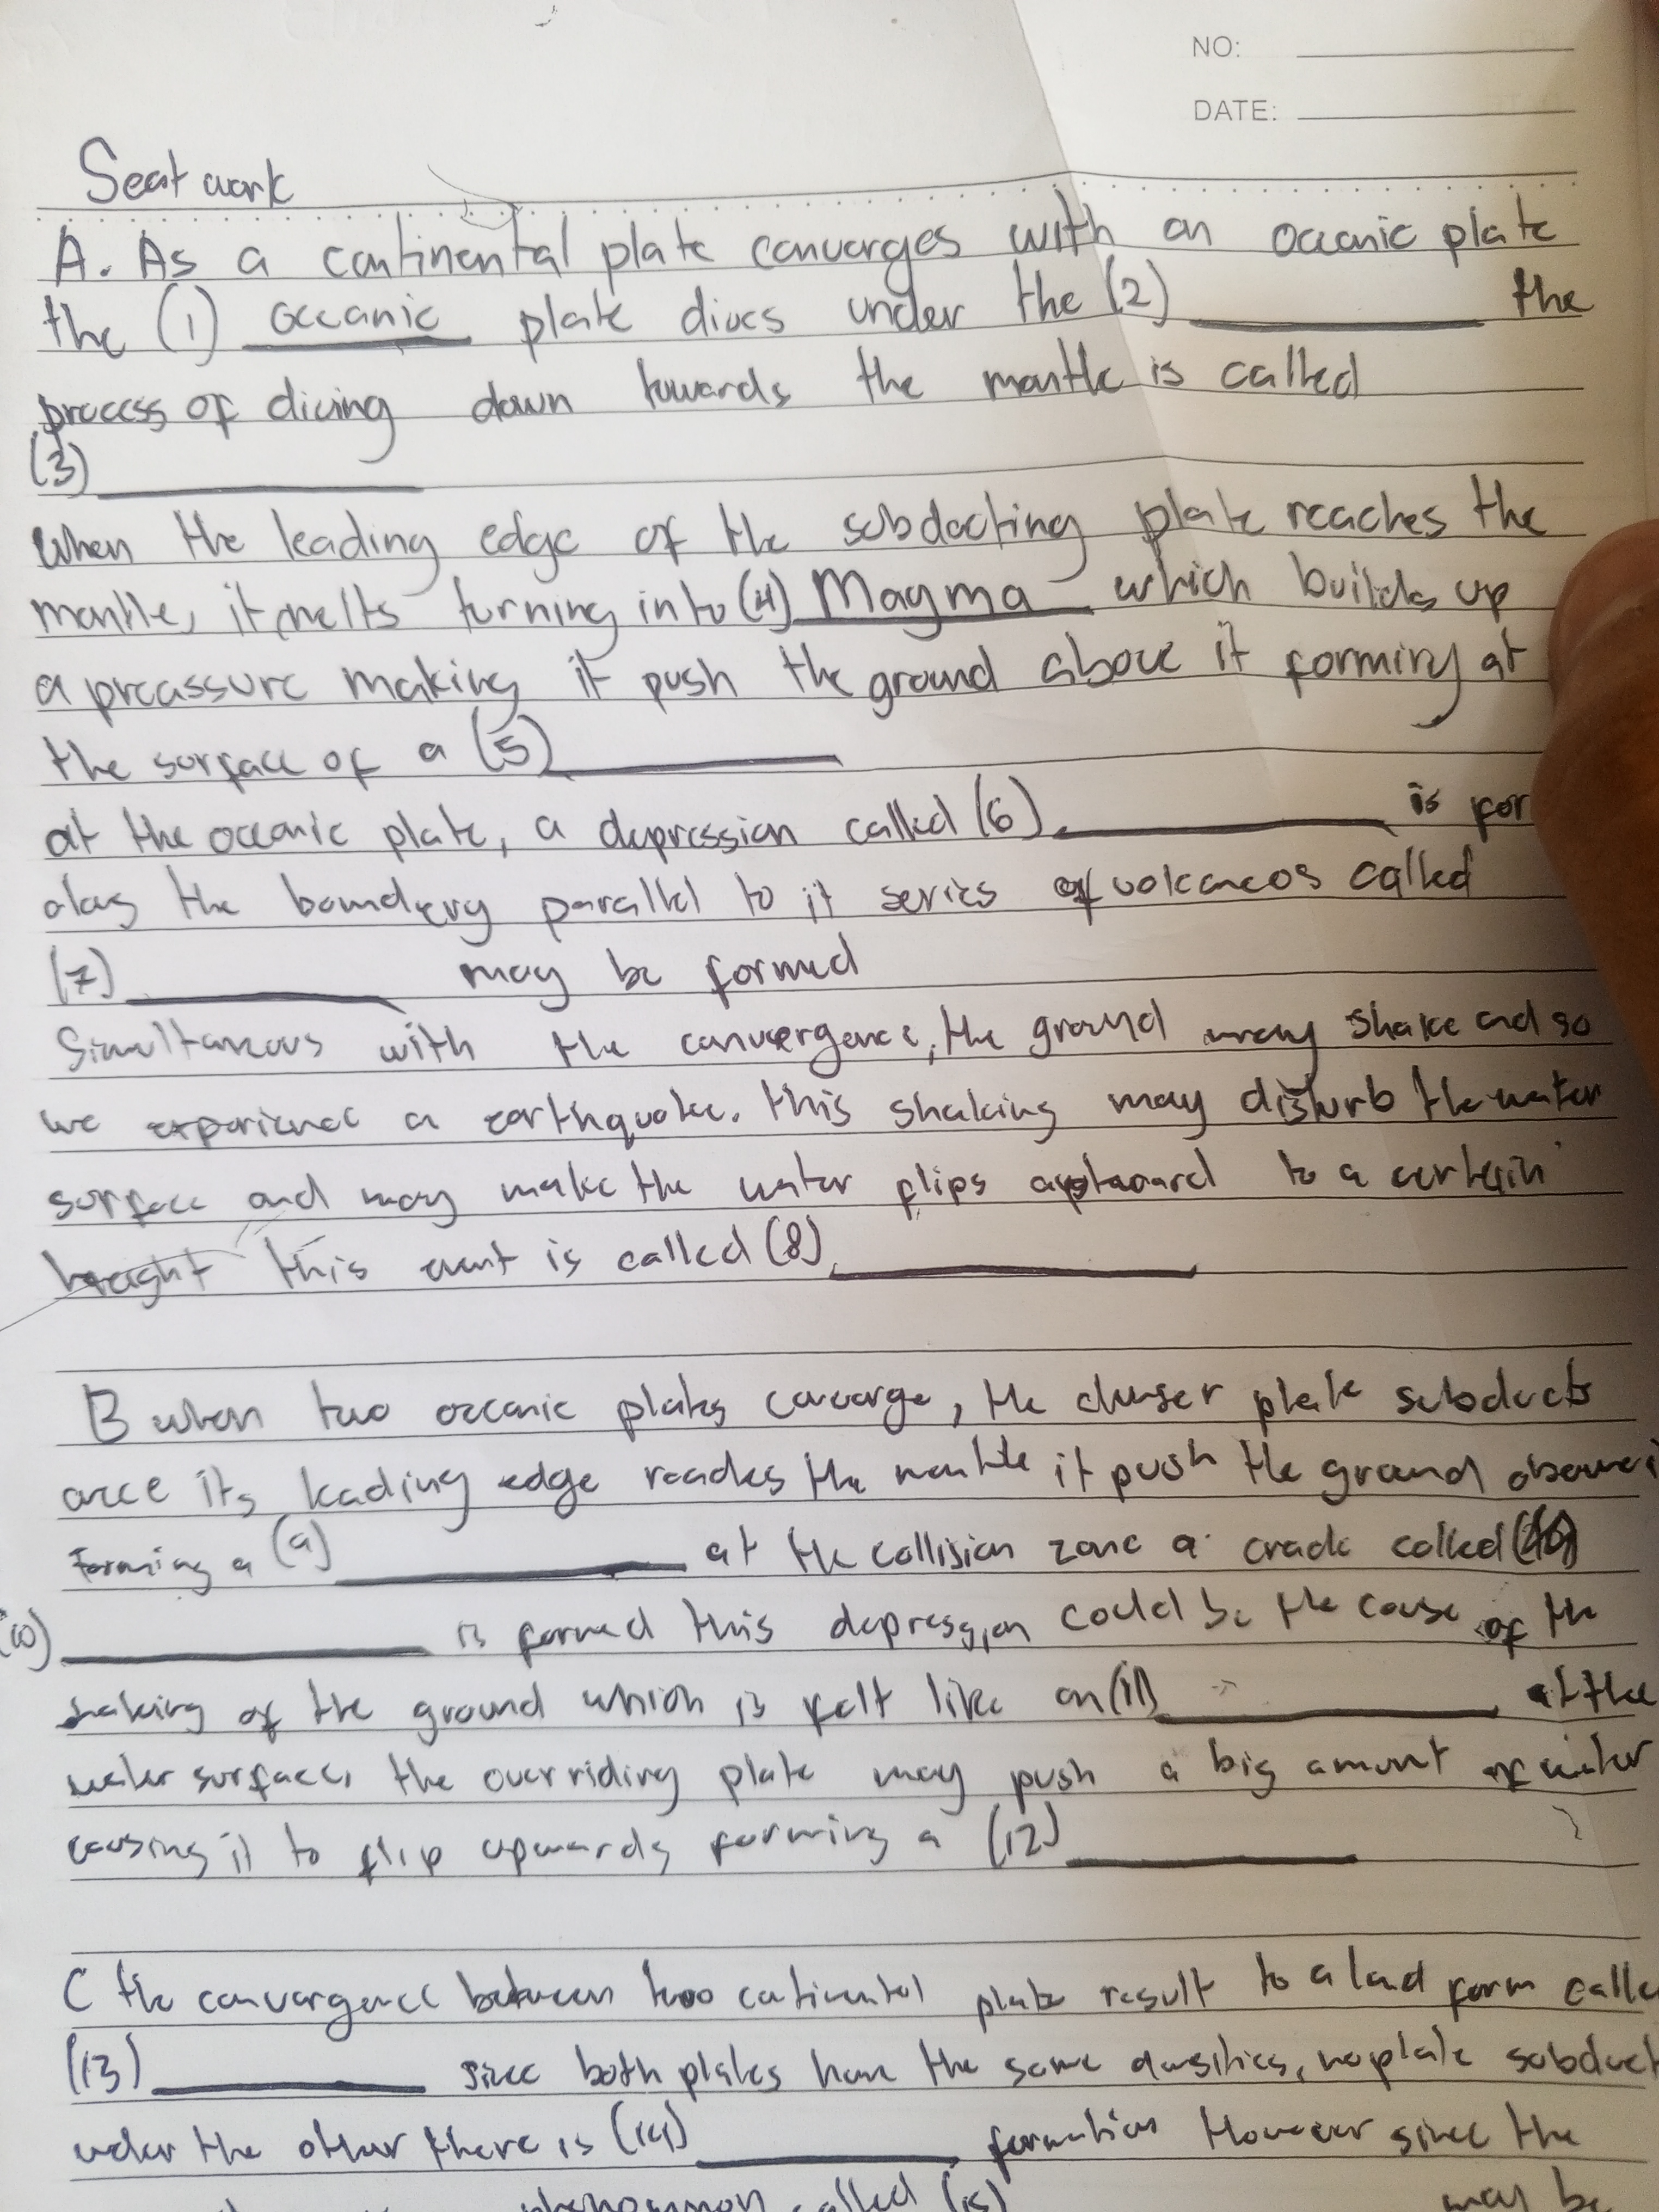 NO:
DATE:
Seat work
A. As a continental plate converges with an oceanic plate
the (1) oceanic plate dives under the (2) the
process of diving down towards the mantle is called
(3)
when the leading edge of the subducting plate reaches the
mantle, it melts turning into (4) Magma which builds up
a preassure making it push the ground above it forming at
the surface of a (5)
at the oceanic plate, a depression called (6) is for
along the boundery parallel to it series of volcaneos called
(7) may be formed
Simultaneous with the convergence, the ground may shake and so
we experience a earthquake. this shaking may disturb the water
surface and may make the water flips to a certain
height this event is called (8)
B when two oceanic plates converge, the denser plate subducts
once its leading edge reaches the mantle it push the ground
Forming a (9) at the collision zone a crack called
(10) is formed this depression could be the cause of the
shaking of the ground which is felt like an (11) at the
water surface, the overriding plate may push a big amount of water
causing it to flip upwards forming a (12)
C the convergence between two continental plate result to a land form calle
(13) since both plates have the same densities, no plate subduct
under the other there is (14) formation However since the
phenommon called (15) may be